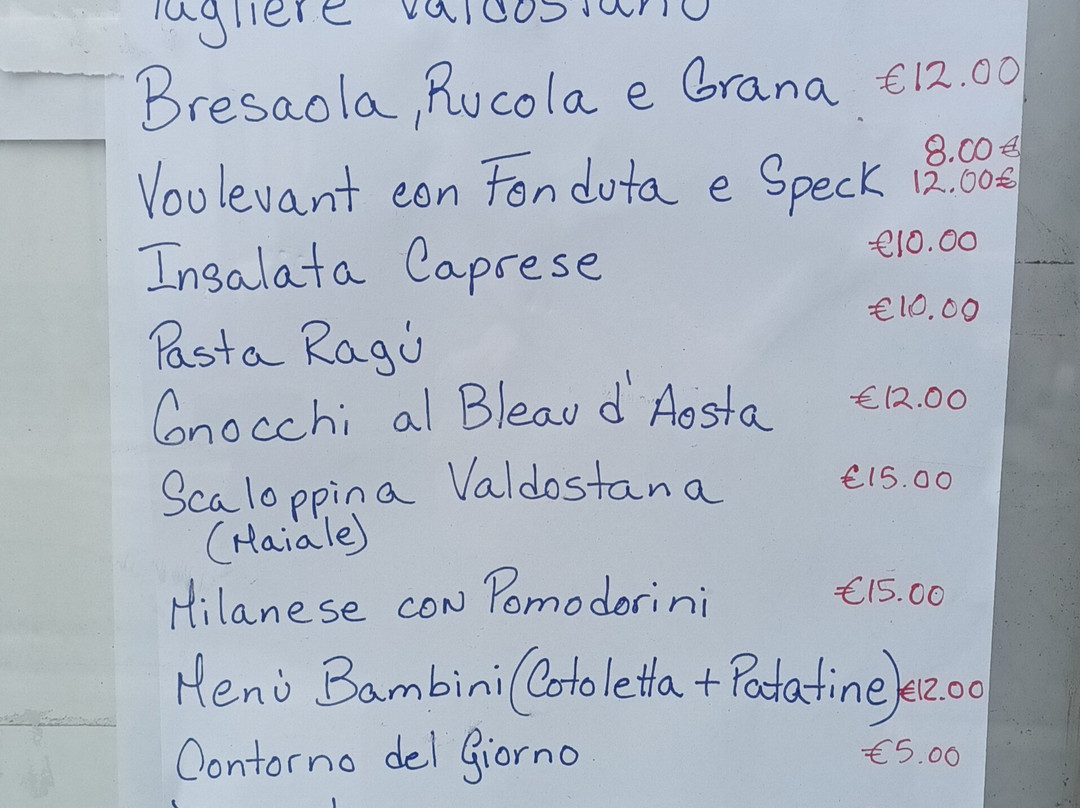 Tagliere Valdostano
Bresaola, Rucola e Grana €12.00
8.00 €
Voulevant con Fonduta e Speck 12.00€
Insalata Caprese €10.00
€10.00
Pasta Ragù
Gnocchi al Bleau d'Aosta €12.00
Scaloppina Valdostana €15.00
(Maiale)
Milanese con Pomodorini €15.00
Menù Bambini (Cotoletta + Patatine) €12.00
Contorno del Giorno €5.00